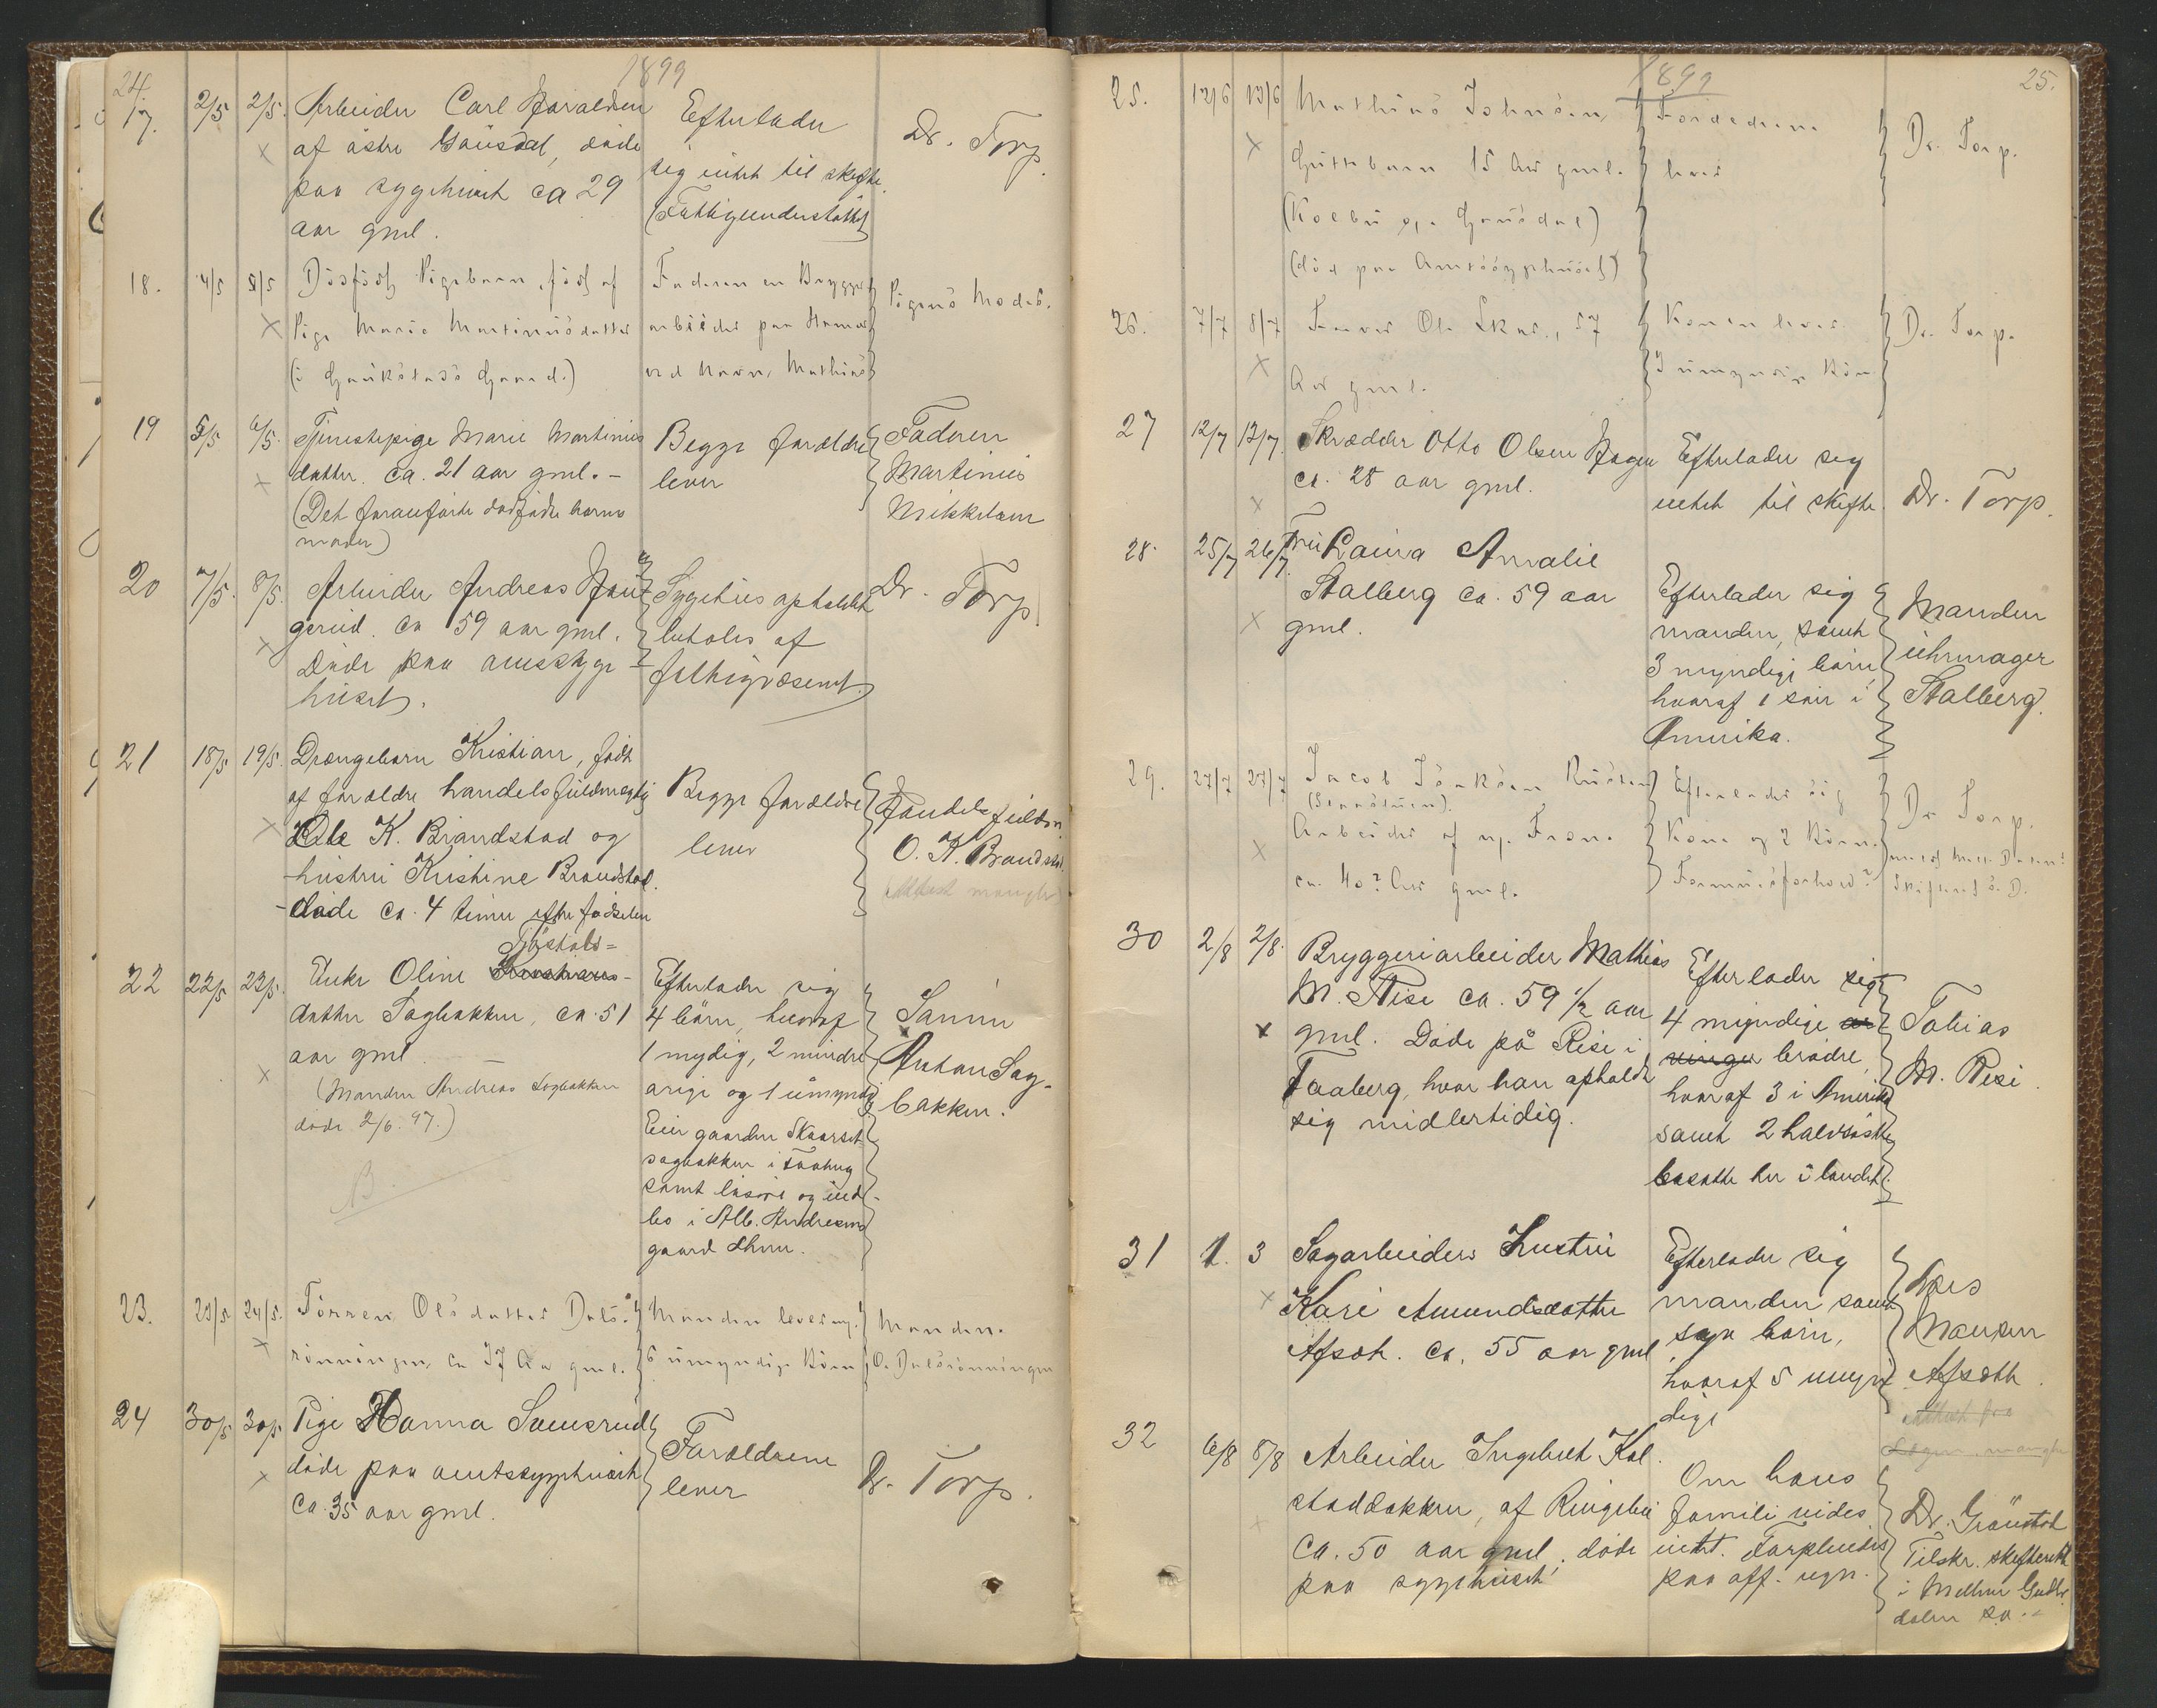 24.
1899
17. 2/5 2/5. Arbeider Carl Haralden
af östre Gausdal, døde
paa sygehuset ca 29
aar gml.
Efterlader
sig intet til skifte.
(Fattigunderstöttet)
Dr. Torp.
18. 4/5 8/5 Dödfödt Pigebarn, född af
Pige Marie Martinusdatter
(i Haukstads Gaard.)
Faderen en Bryggeri
arbeider paa Hamar
ved Navn, Mathias
Pigens Moder.
19 5/5 6/5. Tjenestepige Marie Martinus
datter. ca. 21 aar gml. -
(Det foranførte dødfødte barns
moder)
Begge forældre
lever
Faderen
Martinus
Mikkelsen
20 7/5. 8/5. Arbeider Andreas Hau
gerud. ca 59 aar gml.
Døde paa amtssyge-
huset.
Sygehus opholdet
betales af
fattigvæsenet.
Dr. Torp
21 18/5 19/5. Drængebarn Kristian, født
af forældre handelsfuldmægtig
Ole K. Brandstad og
hustru Kristine Brandstad.
døde ca. 4 timer efter fødselen
Begge forældre
lever
Handelsfuldm.
O. K. Brandstad
(Attest mangler)
Tjöstols=
22 22/5 22/5. Enke Oline
datter Sagbakken, ca. 51
aar gml.
(Manden Andreas Sagbakken
døde 2/6. 97.)
B.
Efterlader sig
4 børn, hvoraf
1 mydig, 2 mindre
arige og 1 umyndig
Eier gaarden Skaarset
sagbakken i Faaberg
samt løsøre og ind-
bo i Alb. Andresens
gaard Lhmr.
Sønnen
Anton Sag-
bakken.
23. 23/5 24/5. Torren Olsdatter Dals-
rönningen, ca 37 Aar gml.
Manden lever og
6 umyndige Börn
Manden.
O. Dalsrönningen
24 30/5 30/5 Pige Hanna Lamsrud
døde paa amtssygehuset
ca. 35 aar gml.
Forældrene
lever
Dr. Torp.
1899
25.
25. 12/6 13/6 Mathias Johnsen,
Guttebarn 15 Aar gml.
(Kolbu v. Gausdal)
(död paa Amtssygehuset)
Forældrene
lever
Dr. Torp.
26. 7/7 8/7 Farver Ole Skar, 57
Aar gml.
Konen lever.
3 umyndige Börn
Dr. Torp.
27 12/7 13/7. Skrædder Otto Olsen Hagen
ca. 28 aar gml.
Efterlader sig
intet til skifte.
Dr. Torp.
28. 25/7 26/7. Fru Laura Amalie
Stalberg ca. 59 aar
gml.
Efterlader sig
manden, samt
3 myndige børn,
hvoraf 1 søn i
Amerika.
Manden
uhrmager
Stalberg.
29. 27/7 27/7 Jacob Isaksen Rusten
Arbeider af
ca. 40? Aar gml.
Efterlader sig
Kone og 2 Börn.
Formuesforhold?
Dr Torp.
30 2/8 2/8. Bryggeriarbeider Mathias
M. Rise ca. 59 1/2 aar
gml. Døde på Rise i
Faaberg, hvor han opholdt
sig midlertidig.
Efterlader sig
4 myndige
brødre,
hvoraf 3 i Amerika
samt 2 halvsøstre
bosatte her i landet.
Tobias
M. Rise.
31 1. 3 Sagarbeiders hustru
Kari Amundsdatter
Afsæth. ca. 55 aar gml.
Efterlader sig
manden samt
syv børn,
hvoraf 5 umyn
dige
Lars
Afsæth.
32 6/8 8/8 Arbeider Ingebret Kol-
stadbakken, af Ringebu
ca. 50 aar gml. døde
paa sygehuset
Om hans
famili vides
intet. Forpleiedes
paa off. regn.
Dr. Grönstøl
Tilskr. skifteret
i Mellem Gudbr.
dalen